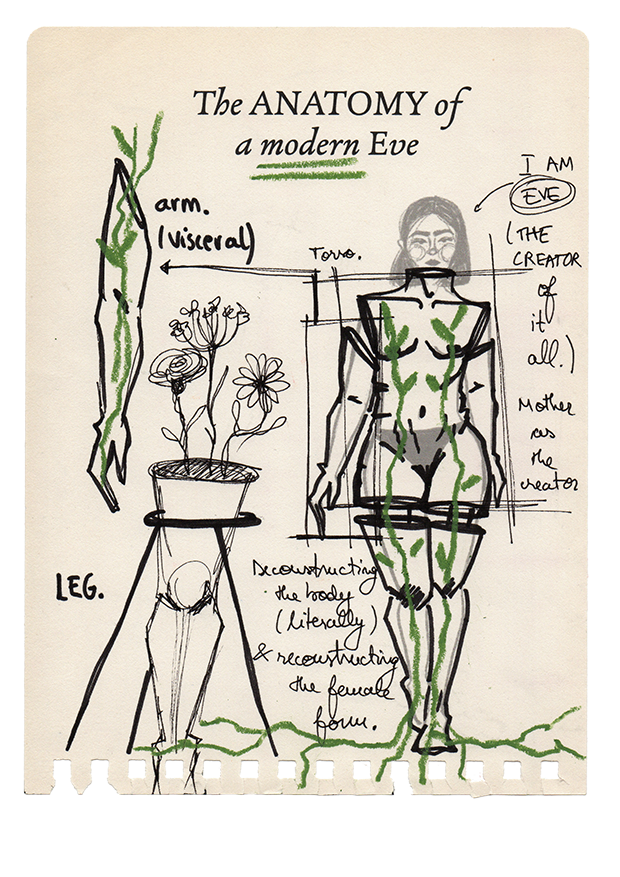 The ANATOMY of
a modern Eve
I AM
EVE
(THE
CREATOR
of
it
all.)
arm.
(visceral)
Torso.
Mother
as
the
creator
LEG.
Deconstructing
the body
(literally)
& reconstructing
the female
form.